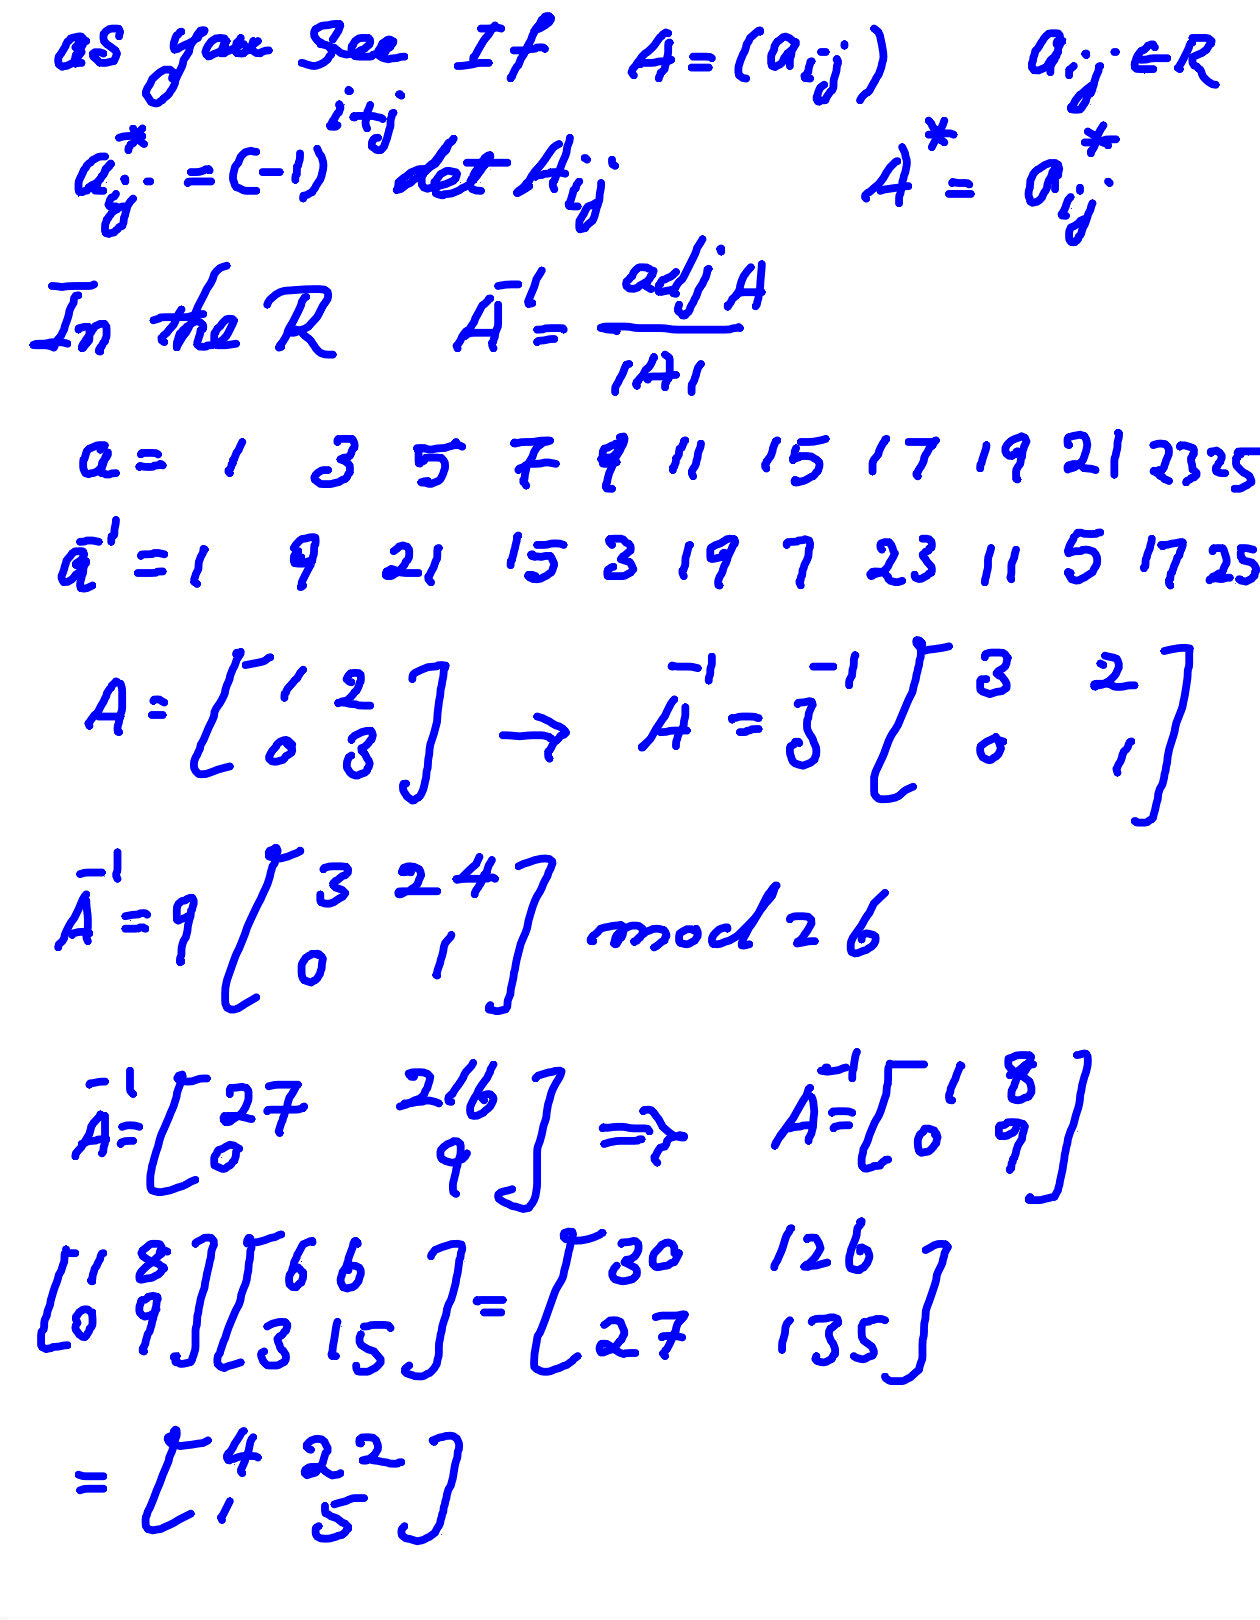 as you see If A = (aij) aij ∈ R
a*ij = (-1)^i+j det Aij A* = a*ij
In the R A^-1 = adj A / |A|
a = 1 3 5 7 9 11 15 17 19 21 23 25
a^-1 = 1 9 21 15 3 19 7 23 11 5 17 25
A = [ 1 2 ] → A^-1 = 3^-1 [ 3 2 ]
0 3 0 1
A^-1 = 9 [ 3 24 ] mod 26
0 1
A^-1 = [ 27 216 ] ⇒ A^-1 = [ 1 8 ]
0 9 0 9
[ 1 8 ] [ 6 6 ] = [ 30 126 ]
0 9 3 15 27 135
= [ 4 22 ]
1 5